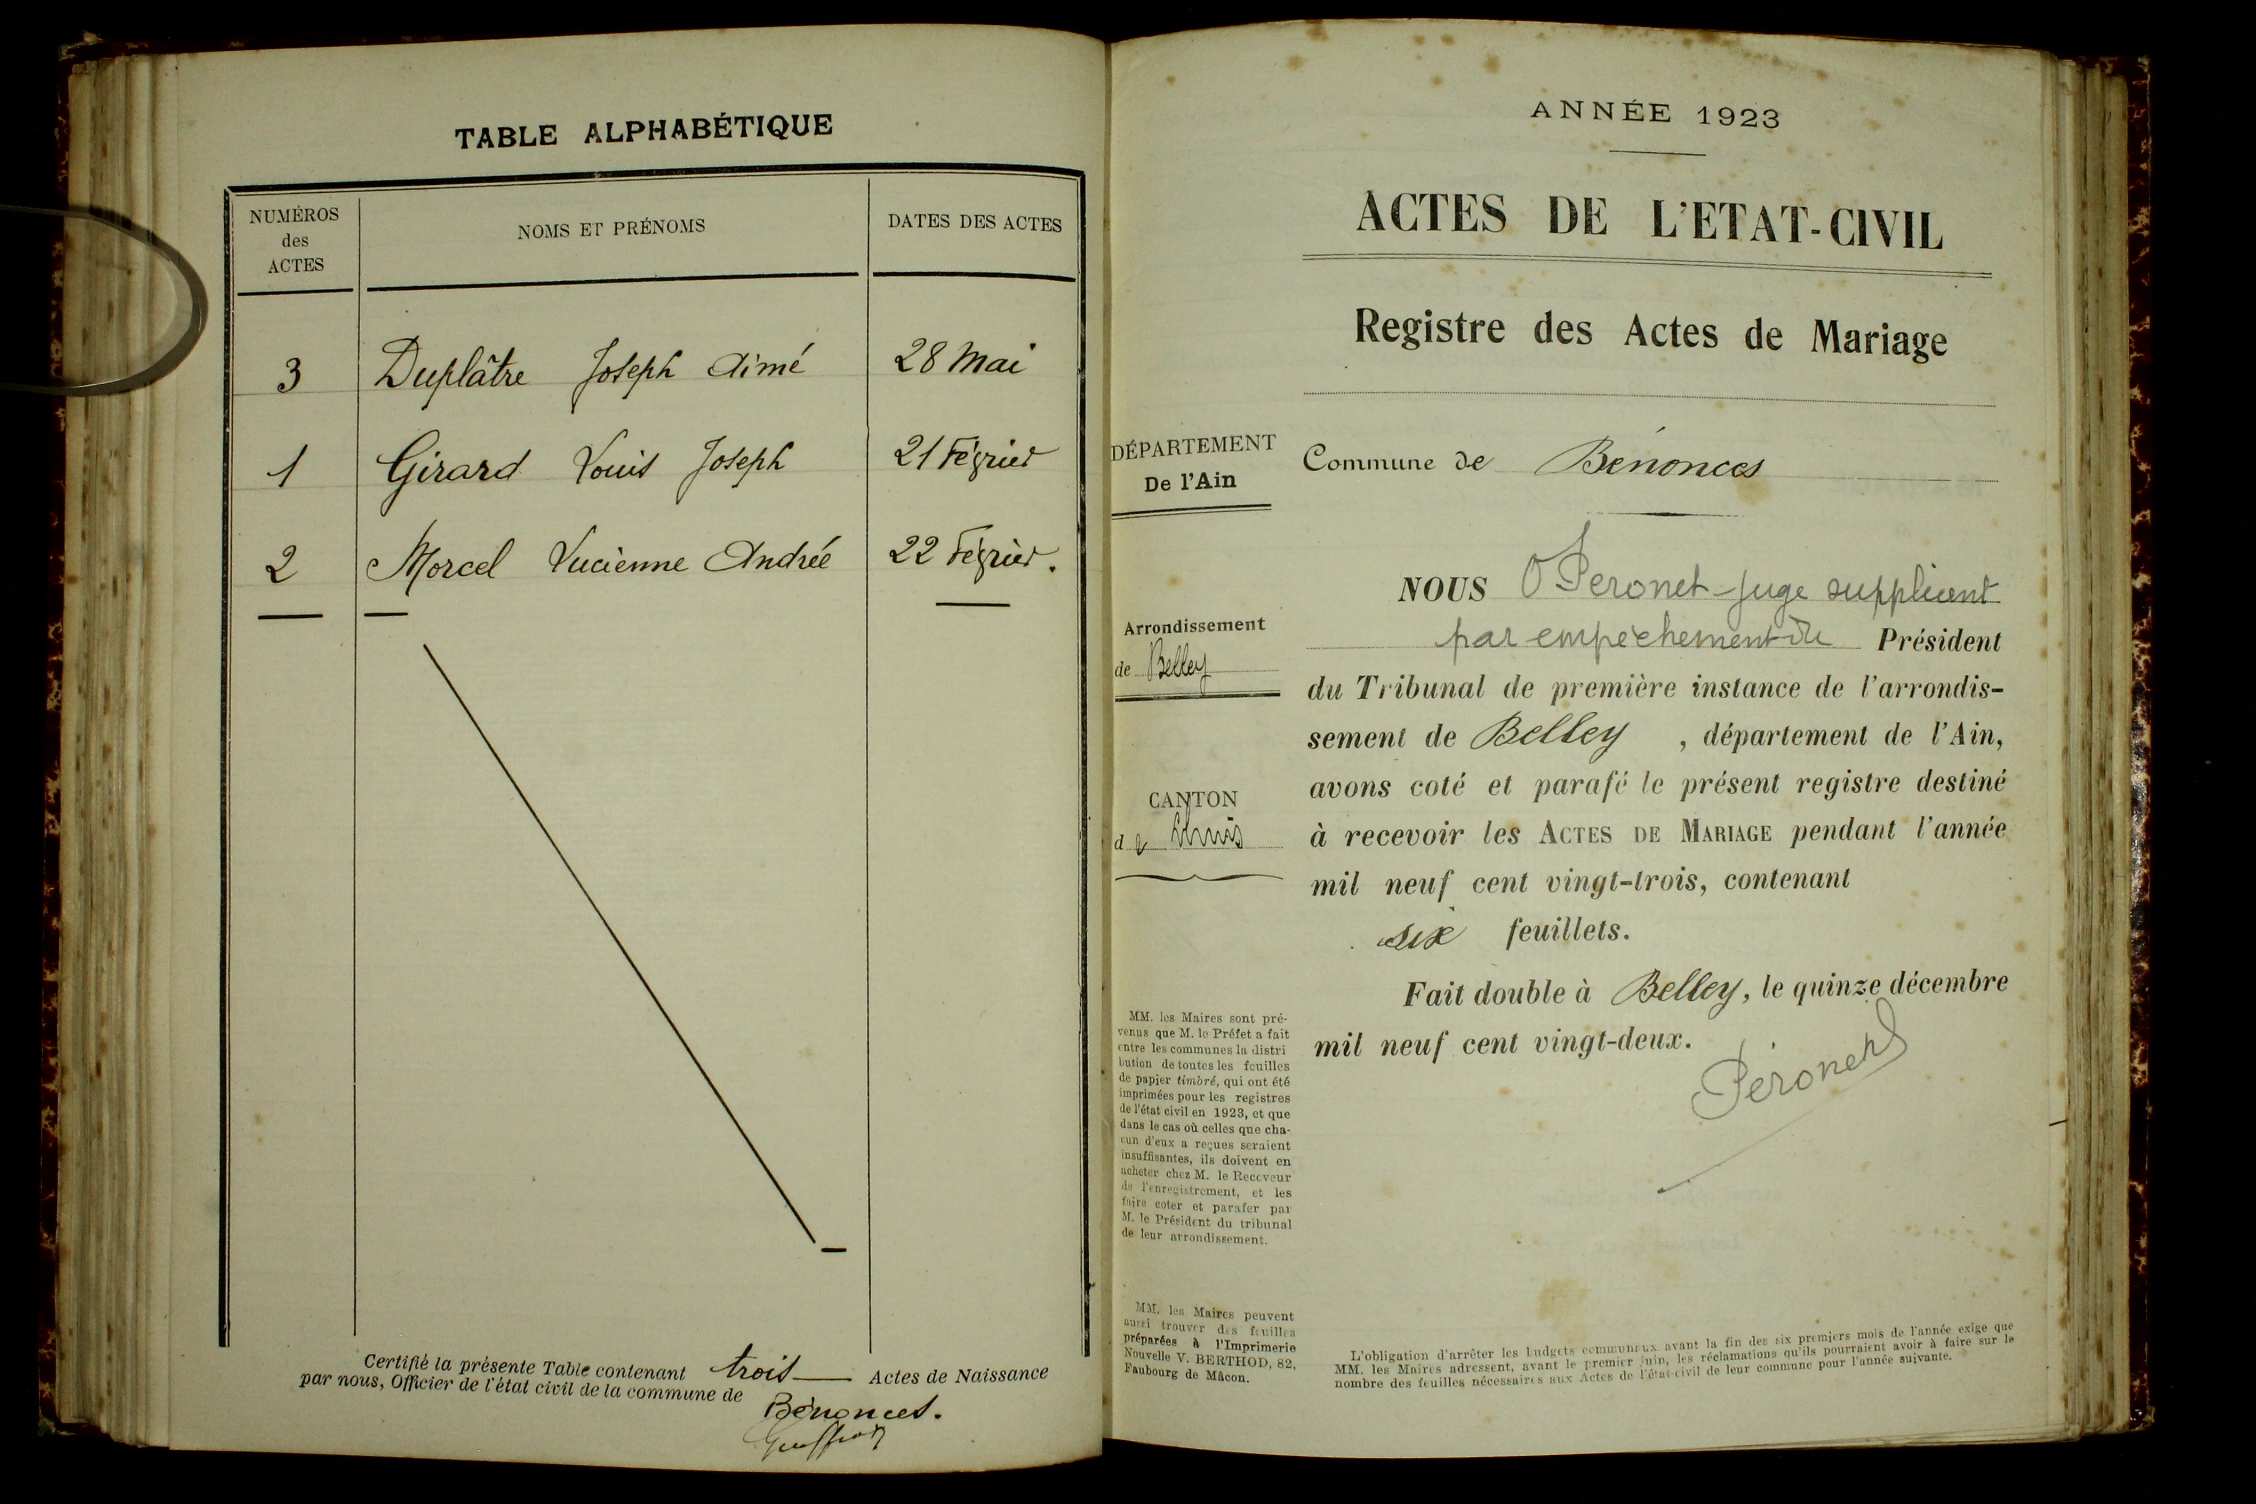 TABLE ALPHABÉTIQUE
NUMÉROS des ACTES
NOMS ET PRÉNOMS
DATES DES ACTES
3 Duplâtre Joseph Aimé 28 Mai
1 Girard Louis Joseph 21 Février
2 Morcel Lucienne Andrée 22 Février.
Certifié la présente Table contenant trois Actes de Naissance
par nous, Officier de l'état civil de la commune de
Bénonces.
ANNÉE 1923
ACTES DE L'ETAT-CIVIL
Registre des Actes de Mariage
DÉPARTEMENT
De l'Ain
Arrondissement
de Belley
CANTON
de
MM. les Maires sont pré-
venus que M. le Préfet a fait
entre les communes la distri
bution de toutes les feuilles
de papier timbré, qui ont été
imprimées pour les registres
de l'état civil en 1923, et que
dans le cas où celles que cha-
cun d'eux a reçues seraient
insuffisantes, ils doivent en
acheter chez M. le Receveur
de l'enregistrement, et les
faire coter et parafer par
M. le Président du tribunal
de leur arrondissement.
MM. les Maires peuvent
aussi trouver des feuilles
préparées à l'Imprimerie
Nouvelle V. BERTHOD, 82,
Faubourg de Mâcon.
Commune de Bénonces
NOUS Peronet juge suppléant
par empêchement du Président
du Tribunal de première instance de l'arrondis-
sement de Belley , département de l'Ain,
avons coté et parafé le présent registre destiné
à recevoir les ACTES DE MARIAGE pendant l'année
mil neuf cent vingt-trois, contenant
six feuillets.
Fait double à Belley, le quinze décembre
mil neuf cent vingt-deux.
Péronet
L'obligation d'arrêter les budgets communaux avant la fin des six premiers mois de l'année exige que
MM. les Maires adressent, avant le premier juin, les réclamations qu'ils pourraient avoir à faire sur le
nombre des feuilles nécessaires aux Actes de l'état-civil de leur commune pour l'année suivante.